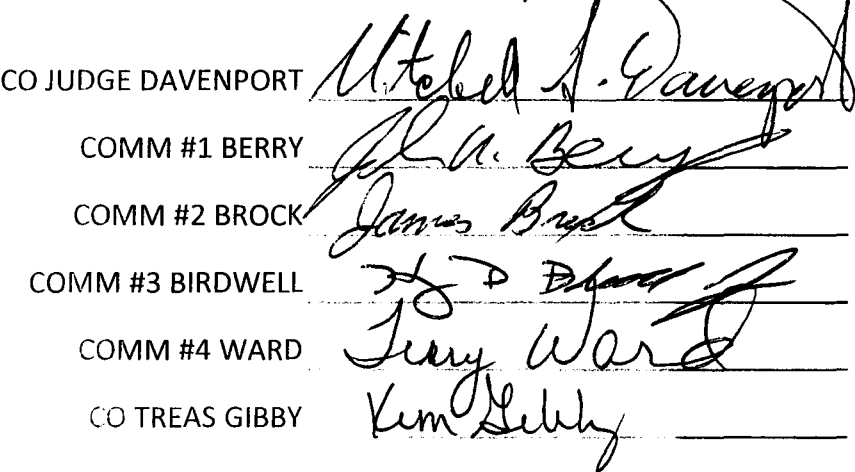 CO JUDGE DAVENPORT Mitchell G. Davenport
COMM #1 BERRY John W. Berry
COMM #2 BROCK James Brock
COMM #3 BIRDWELL D
COMM #4 WARD Terry Ward
CO TREAS GIBBY Kim Gibby